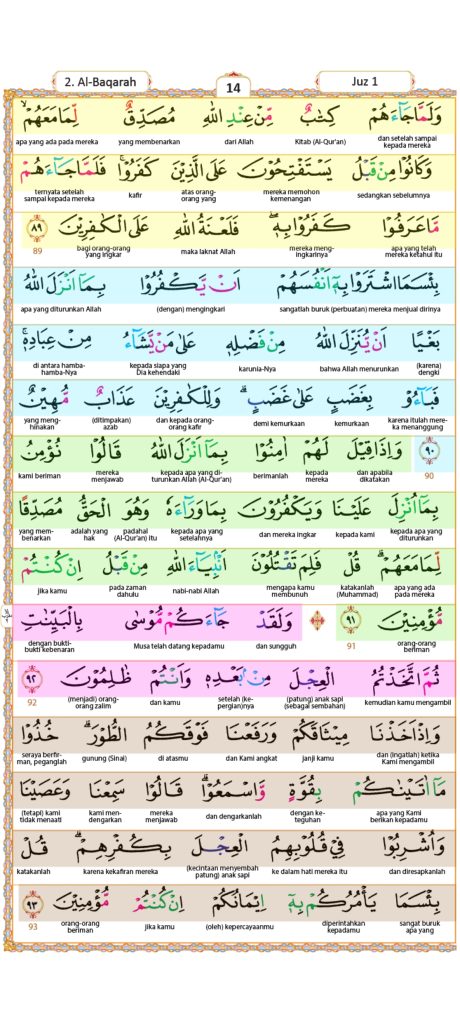 2. Al-Baqarah
14
Juz 1
وَلَمَّا جَاۤءَهُمْ كِتٰبٌ مِّنْ عِنْدِ اللّٰهِ مُصَدِّقٌ لِّمَا مَعَهُمْۙ
dan setelah sampai kepada mereka Kitab (Al-Qur'an) dari Allah yang membenarkan apa yang ada pada mereka
وَكَانُوْا مِنْ قَبْلُ يَسْتَفْتِحُوْنَ عَلَى الَّذِيْنَ كَفَرُوْاۚ فَلَمَّا جَاۤءَهُمْ
sedangkan sebelumnya mereka memohon kemenangan atas orang-orang yang kafir ternyata setelah sampai kepada mereka
مَّا عَرَفُوْا كَفَرُوْا بِهٖۖ فَلَعْنَةُ اللّٰهِ عَلَى الْكٰفِرِيْنَ ٨٩
apa yang telah mereka ketahui itu mereka meng-ingkarinya maka laknat Allah bagi orang-orang yang ingkar 89
بِئْسَمَا اشْتَرَوْا بِهٖٓ اَنْفُسَهُمْ اَنْ يَّكْفُرُوْا بِمَآ اَنْزَلَ اللّٰهُ
sangatlah buruk (perbuatan) mereka menjual dirinya (dengan) mengingkari apa yang diturunkan Allah
بَغْيًا اَنْ يُّنَزِّلَ اللّٰهُ مِنْ فَضْلِهٖ عَلٰى مَنْ يَّشَاۤءُ مِنْ عِبَادِهٖۚ
(karena) dengki bahwa Allah menurunkan karunia-Nya kepada siapa yang Dia kehendaki di antara hamba-hamba-Nya
فَبَاۤءُوْ بِغَضَبٍ عَلٰى غَضَبٍۗ وَلِلْكٰفِرِيْنَ عَذَابٌ مُّهِيْنٌ
karena itulah mere-ka menanggung kemurkaan demi kemurkaan dan kepada orang-orang kafir (ditimpakan) azab yang meng-hinakan
٩٠ وَاِذَا قِيْلَ لَهُمْ اٰمِنُوْا بِمَآ اَنْزَلَ اللّٰهُ قَالُوْا نُؤْمِنُ
90 dan apabila dikatakan kepada mereka berimanlah kepada apa yang di-turunkan Allah (Al-Qur'an) mereka menjawab kami beriman
بِمَآ اُنْزِلَ عَلَيْنَا وَيَكْفُرُوْنَ بِمَا وَرَاۤءَهٗ وَهُوَ الْحَقُّ مُصَدِّقًا
kepada apa yang diturunkan kepada kami dan mereka ingkar kepada apa yang setelahnya padahal (Al-Qur'an) itu adalah yang hak yang mem-benarkan
لِّمَا مَعَهُمْۗ قُلْ فَلِمَ تَقْتُلُوْنَ اَنْۢبِيَاۤءَ اللّٰهِ مِنْ قَبْلُ اِنْ كُنْتُمْ
apa yang ada pada mereka katakanlah (Muhammad) mengapa kamu membunuh nabi-nabi Allah pada zaman dahulu jika kamu
مُّؤْمِنِيْنَ ٩١ وَلَقَدْ جَاۤءَكُمْ مُّوْسٰى بِالْبَيِّنٰتِ
orang-orang beriman 91 dan sungguh Musa telah datang kepadamu dengan bukti-bukti kebenaran
ثُمَّ اتَّخَذْتُمُ الْعِجْلَ مِنْۢ بَعْدِهٖ وَاَنْتُمْ ظٰلِمُوْنَ ٩٢
kemudian kamu mengambil (patung) anak sapi (sebagai sembahan) setelah (ke-pergian)nya dan kamu (menjadi) orang-orang zalim 92
وَاِذْ اَخَذْنَا مِيْثَاقَكُمْ وَرَفَعْنَا فَوْقَكُمُ الطُّوْرَۗ خُذُوْا
dan (ingatlah) ketika Kami mengambil janji kamu dan Kami angkat di atasmu gunung (Sinai) seraya berfir-man, peganglah
مَآ اٰتَيْنٰكُمْ بِقُوَّةٍ وَّاسْمَعُوْاۗ قَالُوْا سَمِعْنَا وَعَصَيْنَا
apa yang Kami berikan kepadamu dengan ke-teguhan dan dengarkanlah mereka menjawab kami men-dengarkan (tetapi) kami tidak menaati
وَاُشْرِبُوْا فِيْ قُلُوْبِهِمُ الْعِجْلَ بِكُفْرِهِمْۗ قُلْ
dan diresapkanlah ke dalam hati mereka itu (kecintaan menyembah patung) anak sapi karena kekafiran mereka katakanlah
بِئْسَمَا يَأْمُرُكُمْ بِهٖٓ اِيْمَانُكُمْ اِنْ كُنْتُمْ مُّؤْمِنِيْنَ ٩٣
sangat buruk apa yang diperintahkan kepadamu (oleh) kepercayaanmu jika kamu orang-orang beriman 93